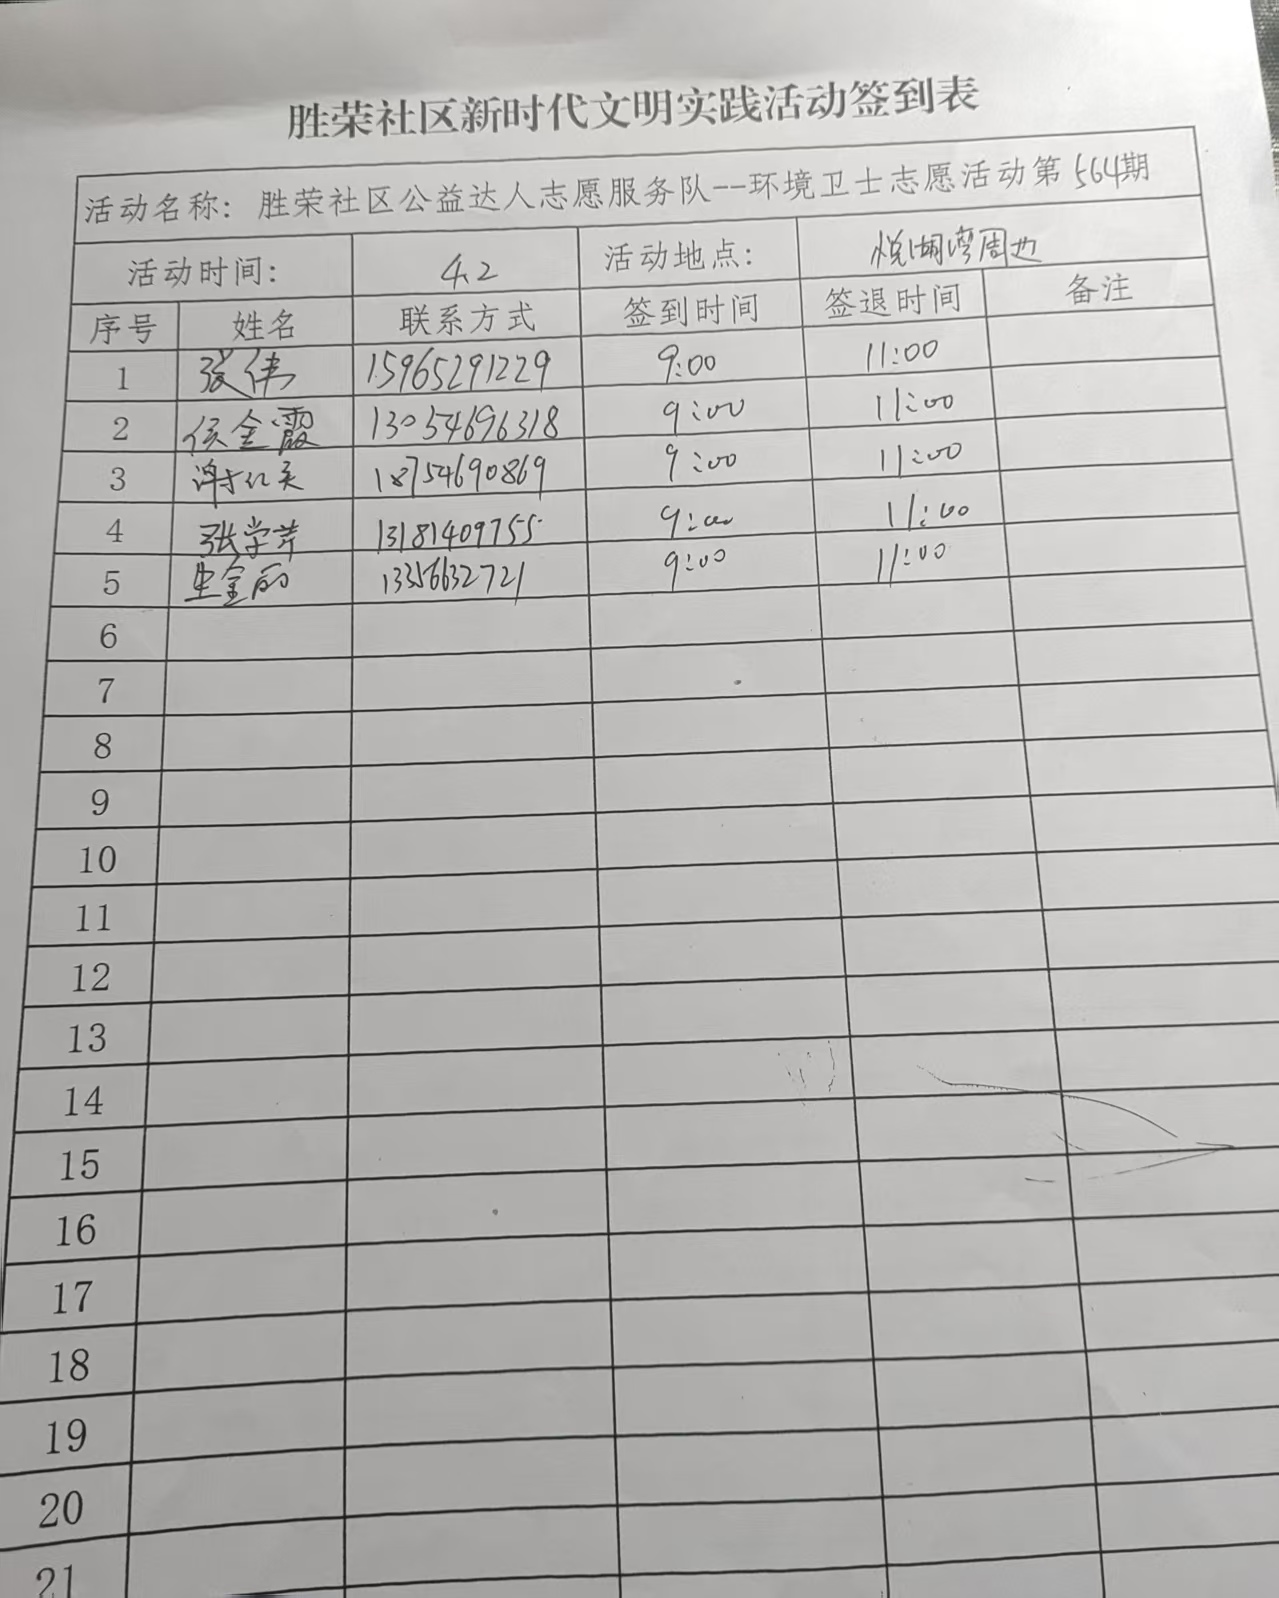 胜荣社区新时代文明实践活动签到表
活动名称：胜荣社区公益达人志愿服务队--环境卫士志愿活动第564期
活动时间： 4.2 活动地点： 悦湖湾周边
序号 姓名 联系方式 签到时间 签退时间 备注
1 张伟 15965291229 9:00 11:00
2 侯金霞 13054696318 9:00 11:00
3 谢红美 18754690869 9:00 11:00
4 张学芹 13181409755 9:00 11:00
5 金丽 13356632721 9:00 11:00
6
7
8
9
10
11
12
13
14
15
16
17
18
19
20
21